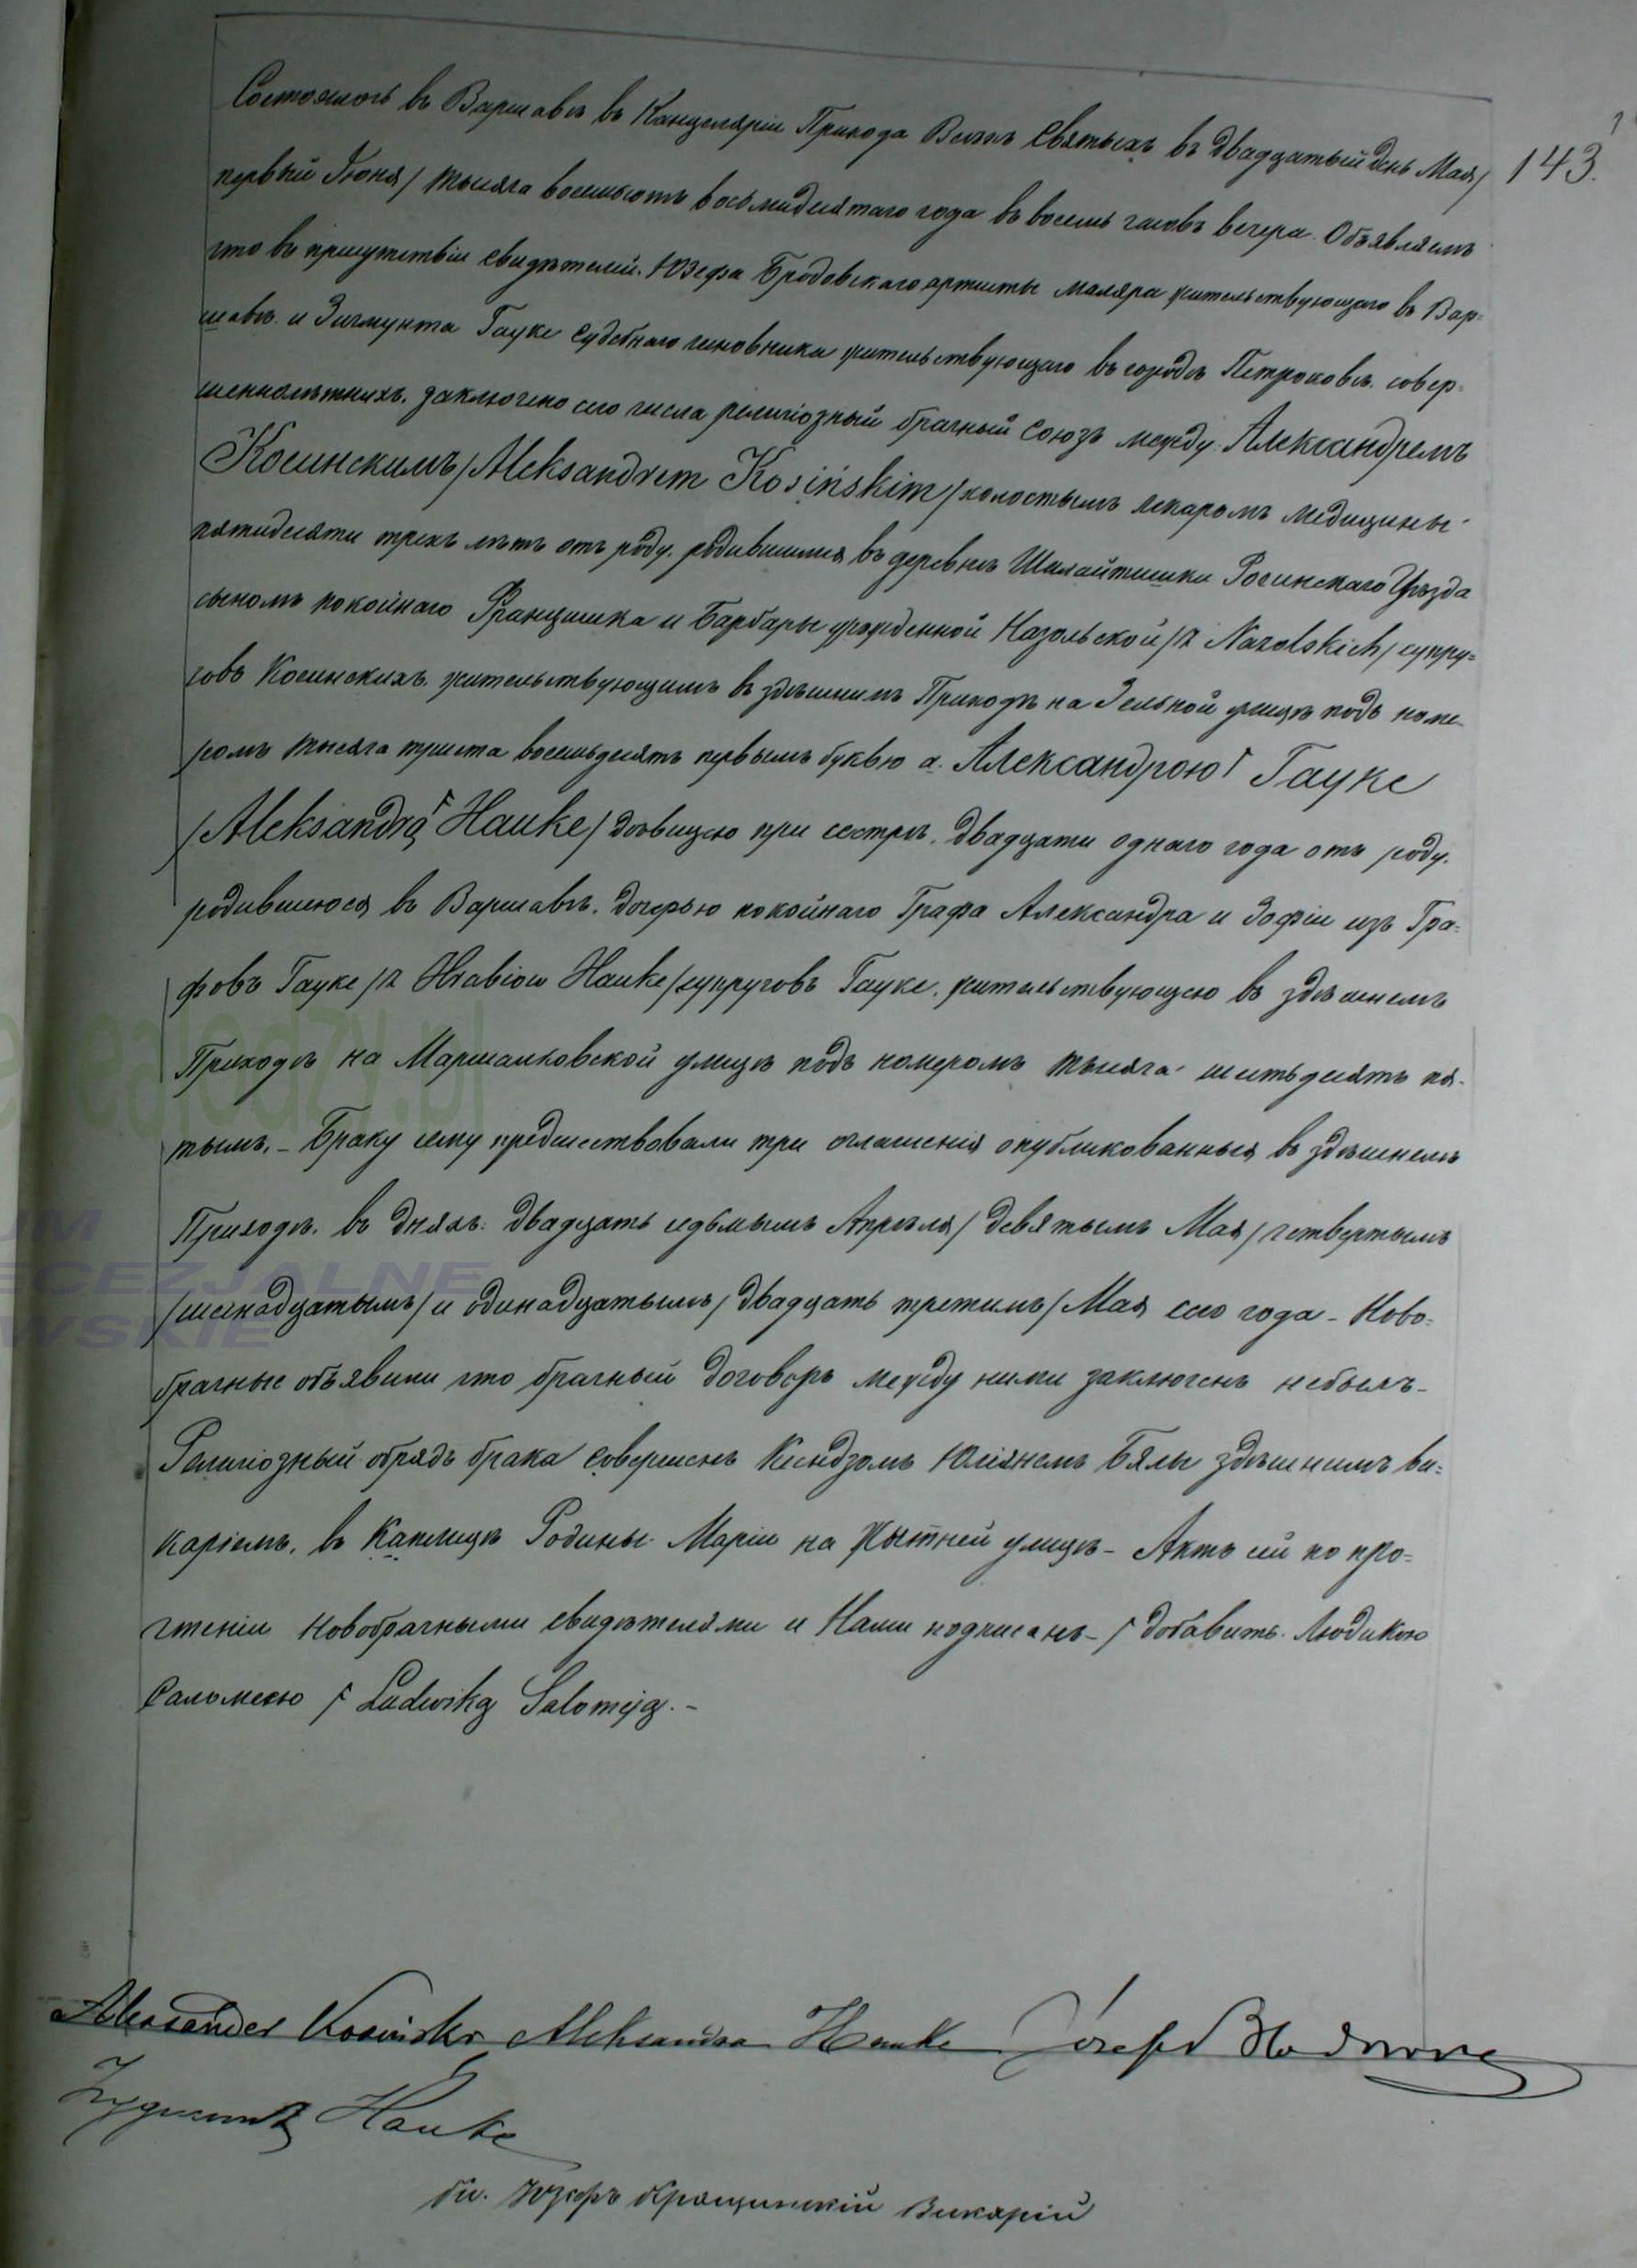 143.
Состоялось въ Варшавѣ въ Канцеляріи Прихода Всѣхъ Святыхъ въ двадцатый день Мая/
первый Іюня/ тысяча восемьсотъ восьмидесятаго года въ восемь часовъ вечера. Объявляемъ
что въ присутствіи свидѣтелей. Юзефа Бродовскаго артисты маляра жительствующаго въ Вар=
шавѣ и Зигмунта Гауке судебнаго чиновника жительствующаго въ городѣ Петроковѣ. совер=
шеннолѣтнихъ. заключено сего числа религіозный брачный союзъ между. Александремъ
Косинскимъ/Aleksandrem Kosińskim/холостымъ лекаромъ медицины
пятидесяти трехъ лѣтъ отъ роду. родившимся въ деревнѣ Шилайтишки Уѣзда
сыномъ покойнаго Францишка и Барбары урожденной Назольской/z Nazolskich/супру=
говъ Косинскихъ. жительствующимъ въ здѣшнимъ Приходѣ на Зельной улицѣ подъ номе
ромъ тысяча триста восемьдесятъ первымъ буквою а. Александрою Г Гауке
/Aleksandrą Г Hauke/ дѣвицею при сестрѣ. двадцати одного года отъ роду.
родившеюся въ Варшавѣ. дочерью покойнаго Графа Александра и Зофіи изъ Гра=
фовъ Гауке/z Hrabiow Hauke/супруговъ Гауке. жительствующею въ здѣшнемъ
Приходѣ на Маршалковской улицѣ подъ номеромъ тысяча шестьдесятъ пя-
тымъ. - Браку сему предшествовали три оглашенія опубликованныя въ здѣшнемъ
Приходѣ. въ дняхъ: двадцать седьмымъ Апрѣля/ девятымъ Мая/ четвертымъ
/шеснадцатымъ/ и одинадцатымъ/ двадцать третимъ/ Мая сего года - Ново=
брачные объявили что брачный договоръ между ними заключенъ небылъ-
Религіозный обрядъ брака совершенъ Ксендзомъ Юліянемъ Бялы здѣшнимъ ви=
каріемъ. въ Каплицѣ Родины Маріи на Жытней улицѣ - Актъ сій по про=
чтеніи Новобрачными свидѣтелями и Нами подписанъ - Г добавить. Людвикою
Саломеею Г Ludwiką Salomeją. -
Aleksander Kosiński Aleksandra Hauke Józef Brodowski
Zygmunt Hauke
Викарій